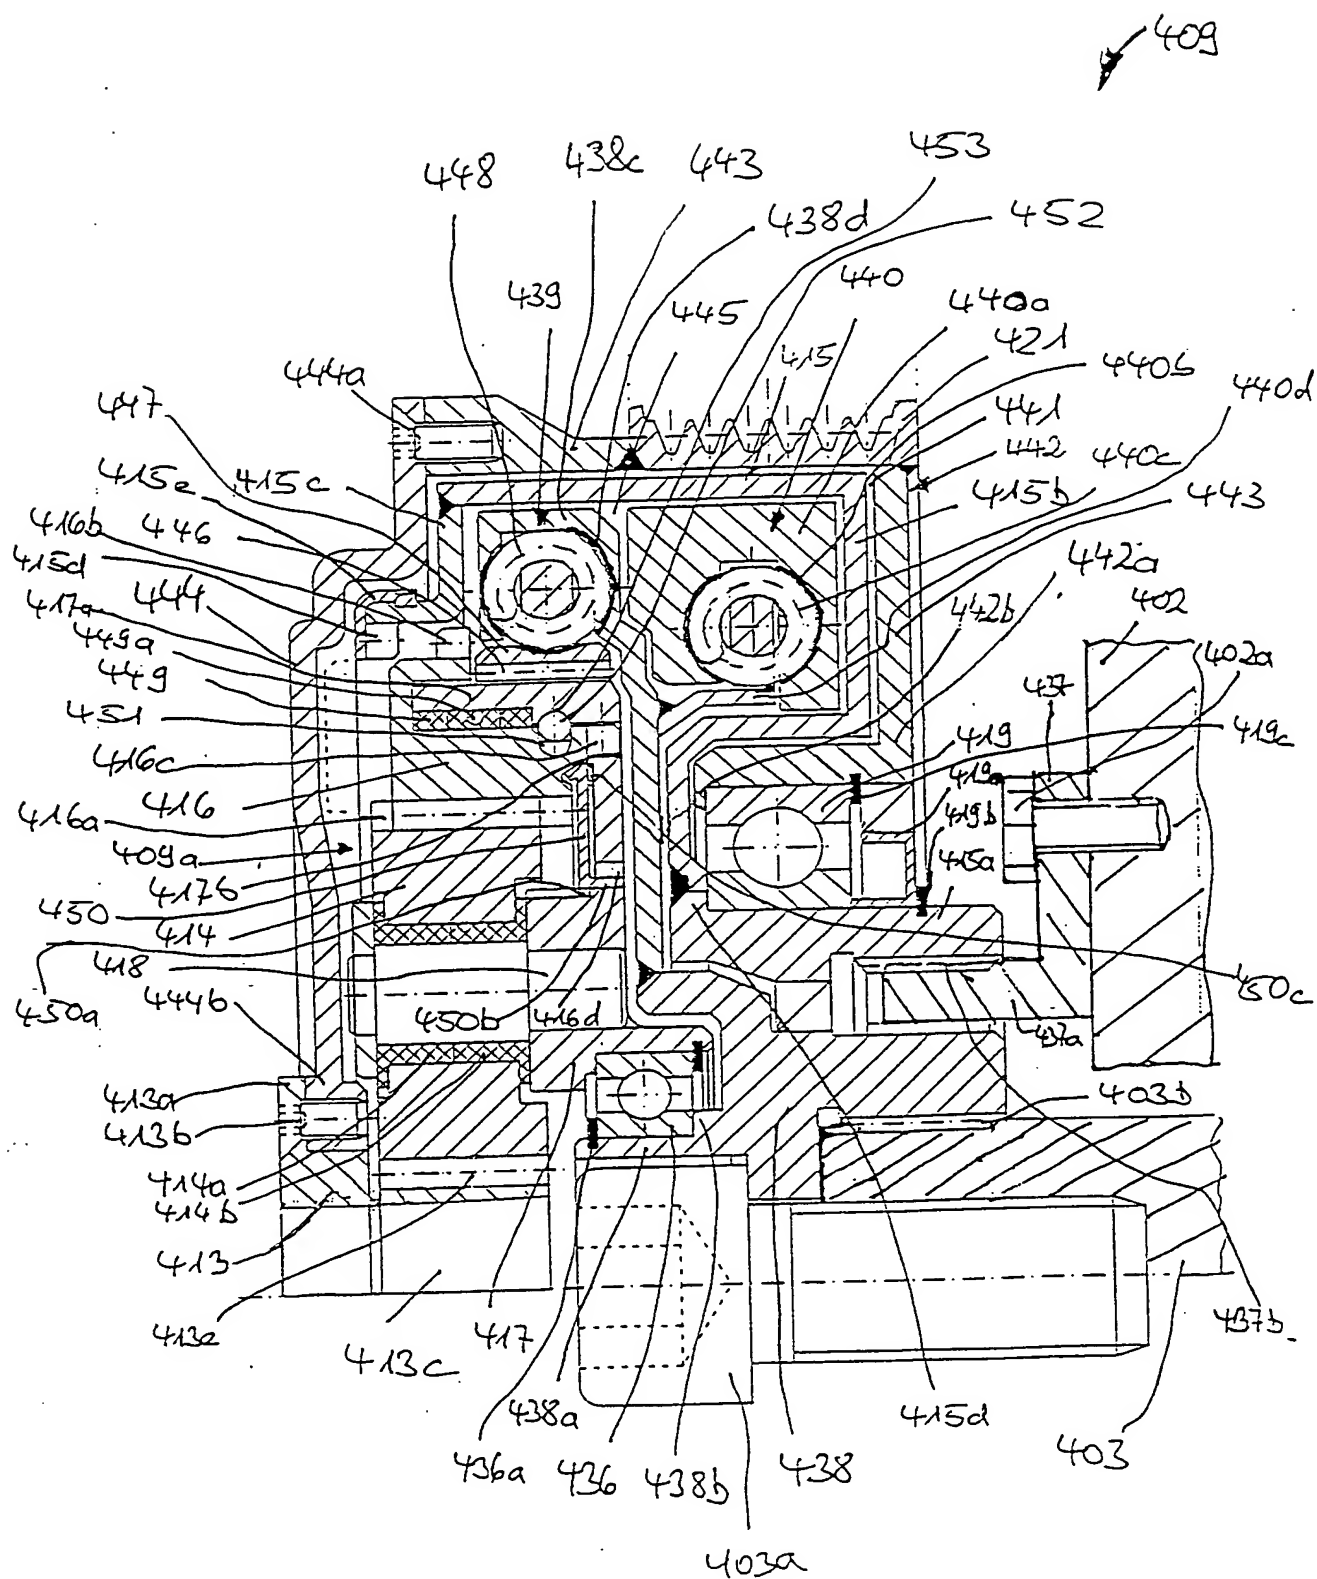 409
453
448
438c
443
438d
452
439
445
440
440a
415
421
444a
440b
440d
447
441
442
440c
415e
415c
415b
443
416b
446
442a
415d
444
402
417a
442b
449a
402a
449
437
451
419
419c
416c
419a
416
416a
419b
409a
415a
417b
450
414
418
450c
444b
450a
450b
416d
437a
413a
403b
413b
414a
414b
413
413e
417
413c
437b
438a
415d
436a
436
438b
438
403
403a